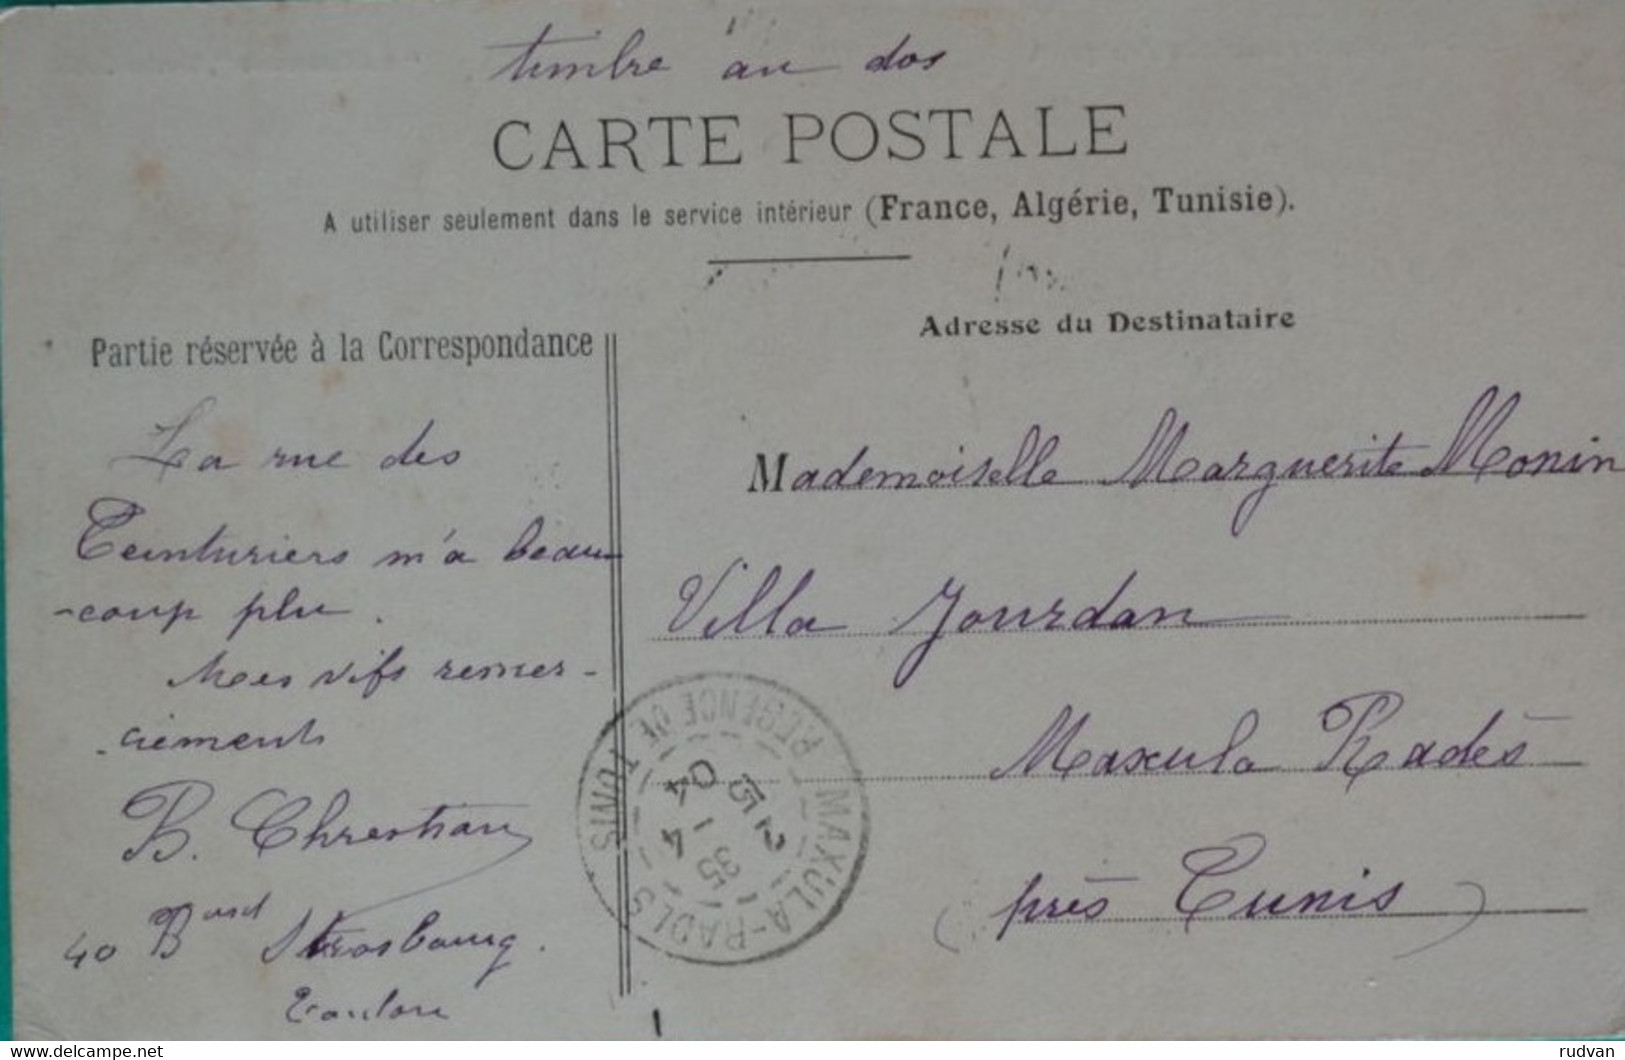 timbre au dos
CARTE POSTALE
A utiliser seulement dans le service intérieur (France, Algérie, Tunisie).
Partie réservée à la Correspondance
La rue des
Teinturiers m'a beau-
-coup plu.
Mes vifs remer-
-ciements
B. Chrestian
40 Bard Strasbourg.
Toulon
Adresse du Destinataire
Mademoiselle Marguerite Monin
Villa Jourdan
Maxula Radès
(près Tunis)
MAXULA-RADES
REGENCE DE TUNIS
delcampe.net
rudvan